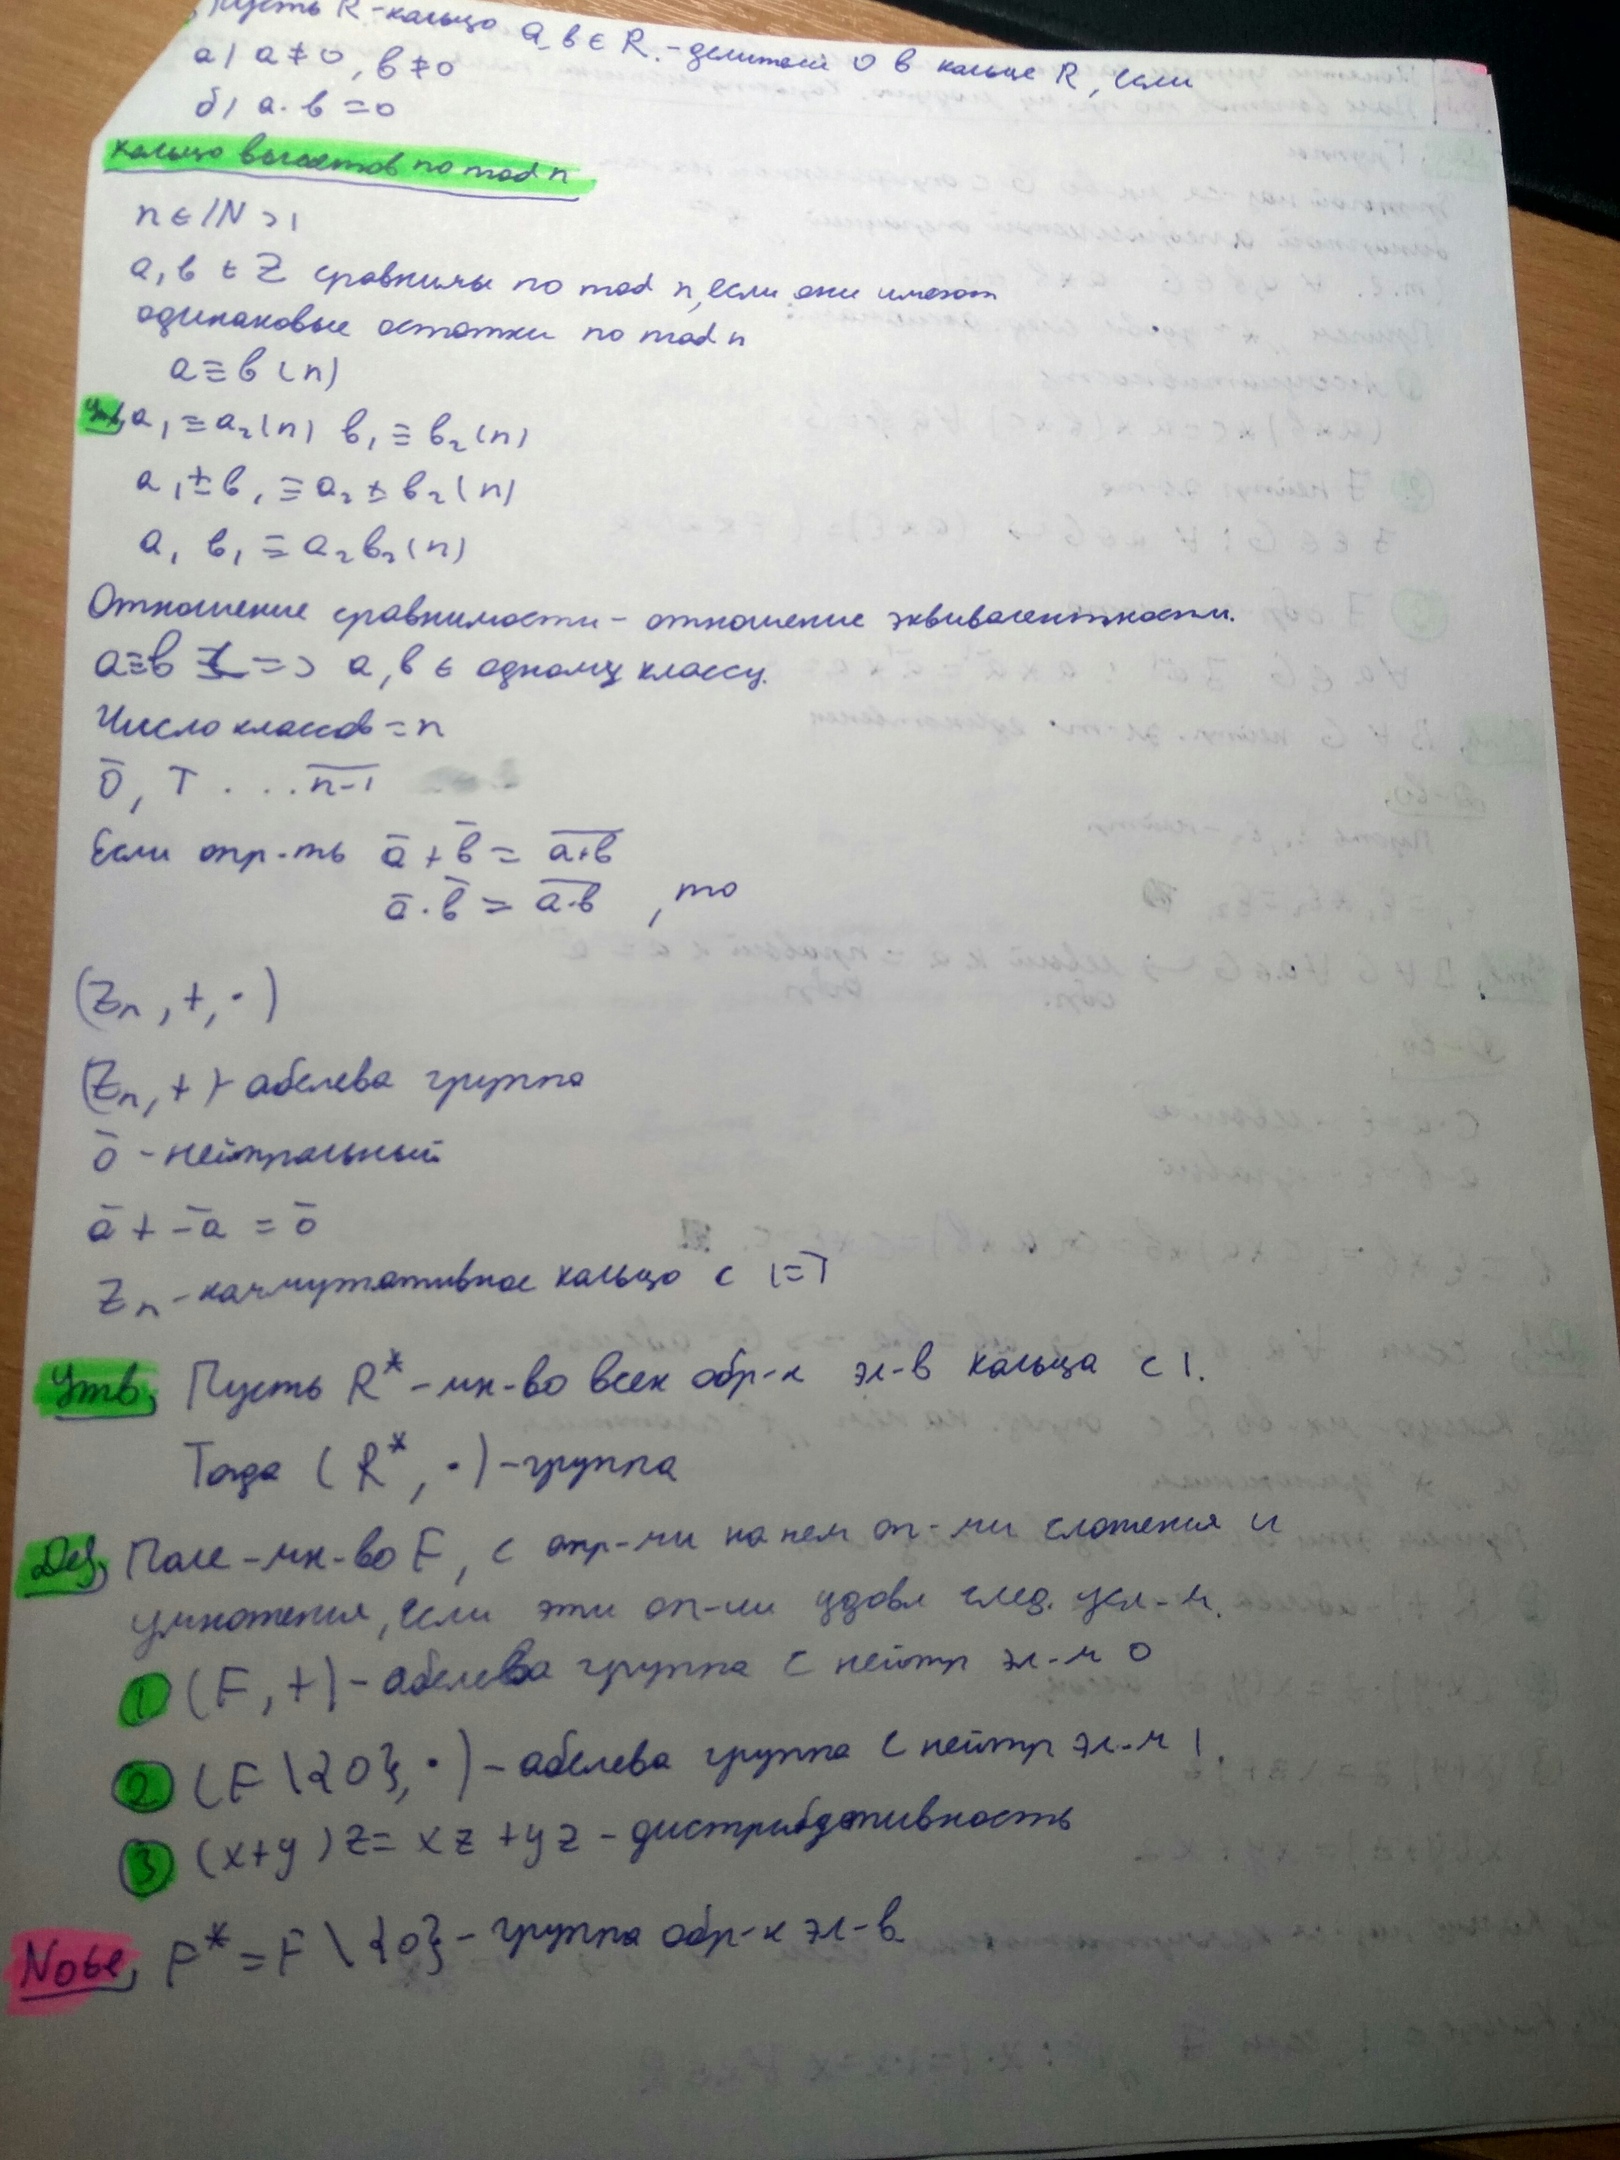 Пусть R - кольцо a, b ∈ R. - делители 0 в кольце R, если
а) a ≠ 0, b ≠ 0
б) a · b = 0
Кольцо вычетов по mod n
n ∈ IN > 1
a, b ∈ Z сравнимы по mod n, если они имеют
одинаковые остатки по mod n
a ≡ b (n)
Утв, a₁ ≡ a₂ (n) b₁ ≡ b₂ (n)
a₁ ± b₁ ≡ a₂ ± b₂ (n)
a₁ b₁ ≡ a₂ b₂ (n)
Отношение сравнимости - отношение эквивалентности.
a ≡ b <=> a, b ∈ одному классу.
Число классов = n
0̅, 1̅ . . . n̅-̅1̅
Если опр-ть a̅ + b̅ = a̅+̅b̅
a̅ · b̅ = a̅·̅b̅ , то
(Zₙ, +, ·)
(Zₙ, +) - абелева группа
0̅ - нейтральный
a̅ + -̅a̅ = 0̅
Zₙ - коммутативное кольцо с 1 = 1̅
Утв, Пусть R* - мн-во всех обр-х эл-в кольца с 1.
Тогда (R*, ·) - группа
Def, Поле - мн-во F, с опр-ми на нем оп-ми сложения и
умножения, если эти оп-ии удовл след. усл-м.
1 (F, +) - абелева группа с нейтр эл-м 0
2 (F \ {0}, ·) - абелева группа с нейтр эл-м 1.
3 (x+y)z = xz + yz - дистрибутивность
Note, F* = F \ {0} - группа обр-х эл-в